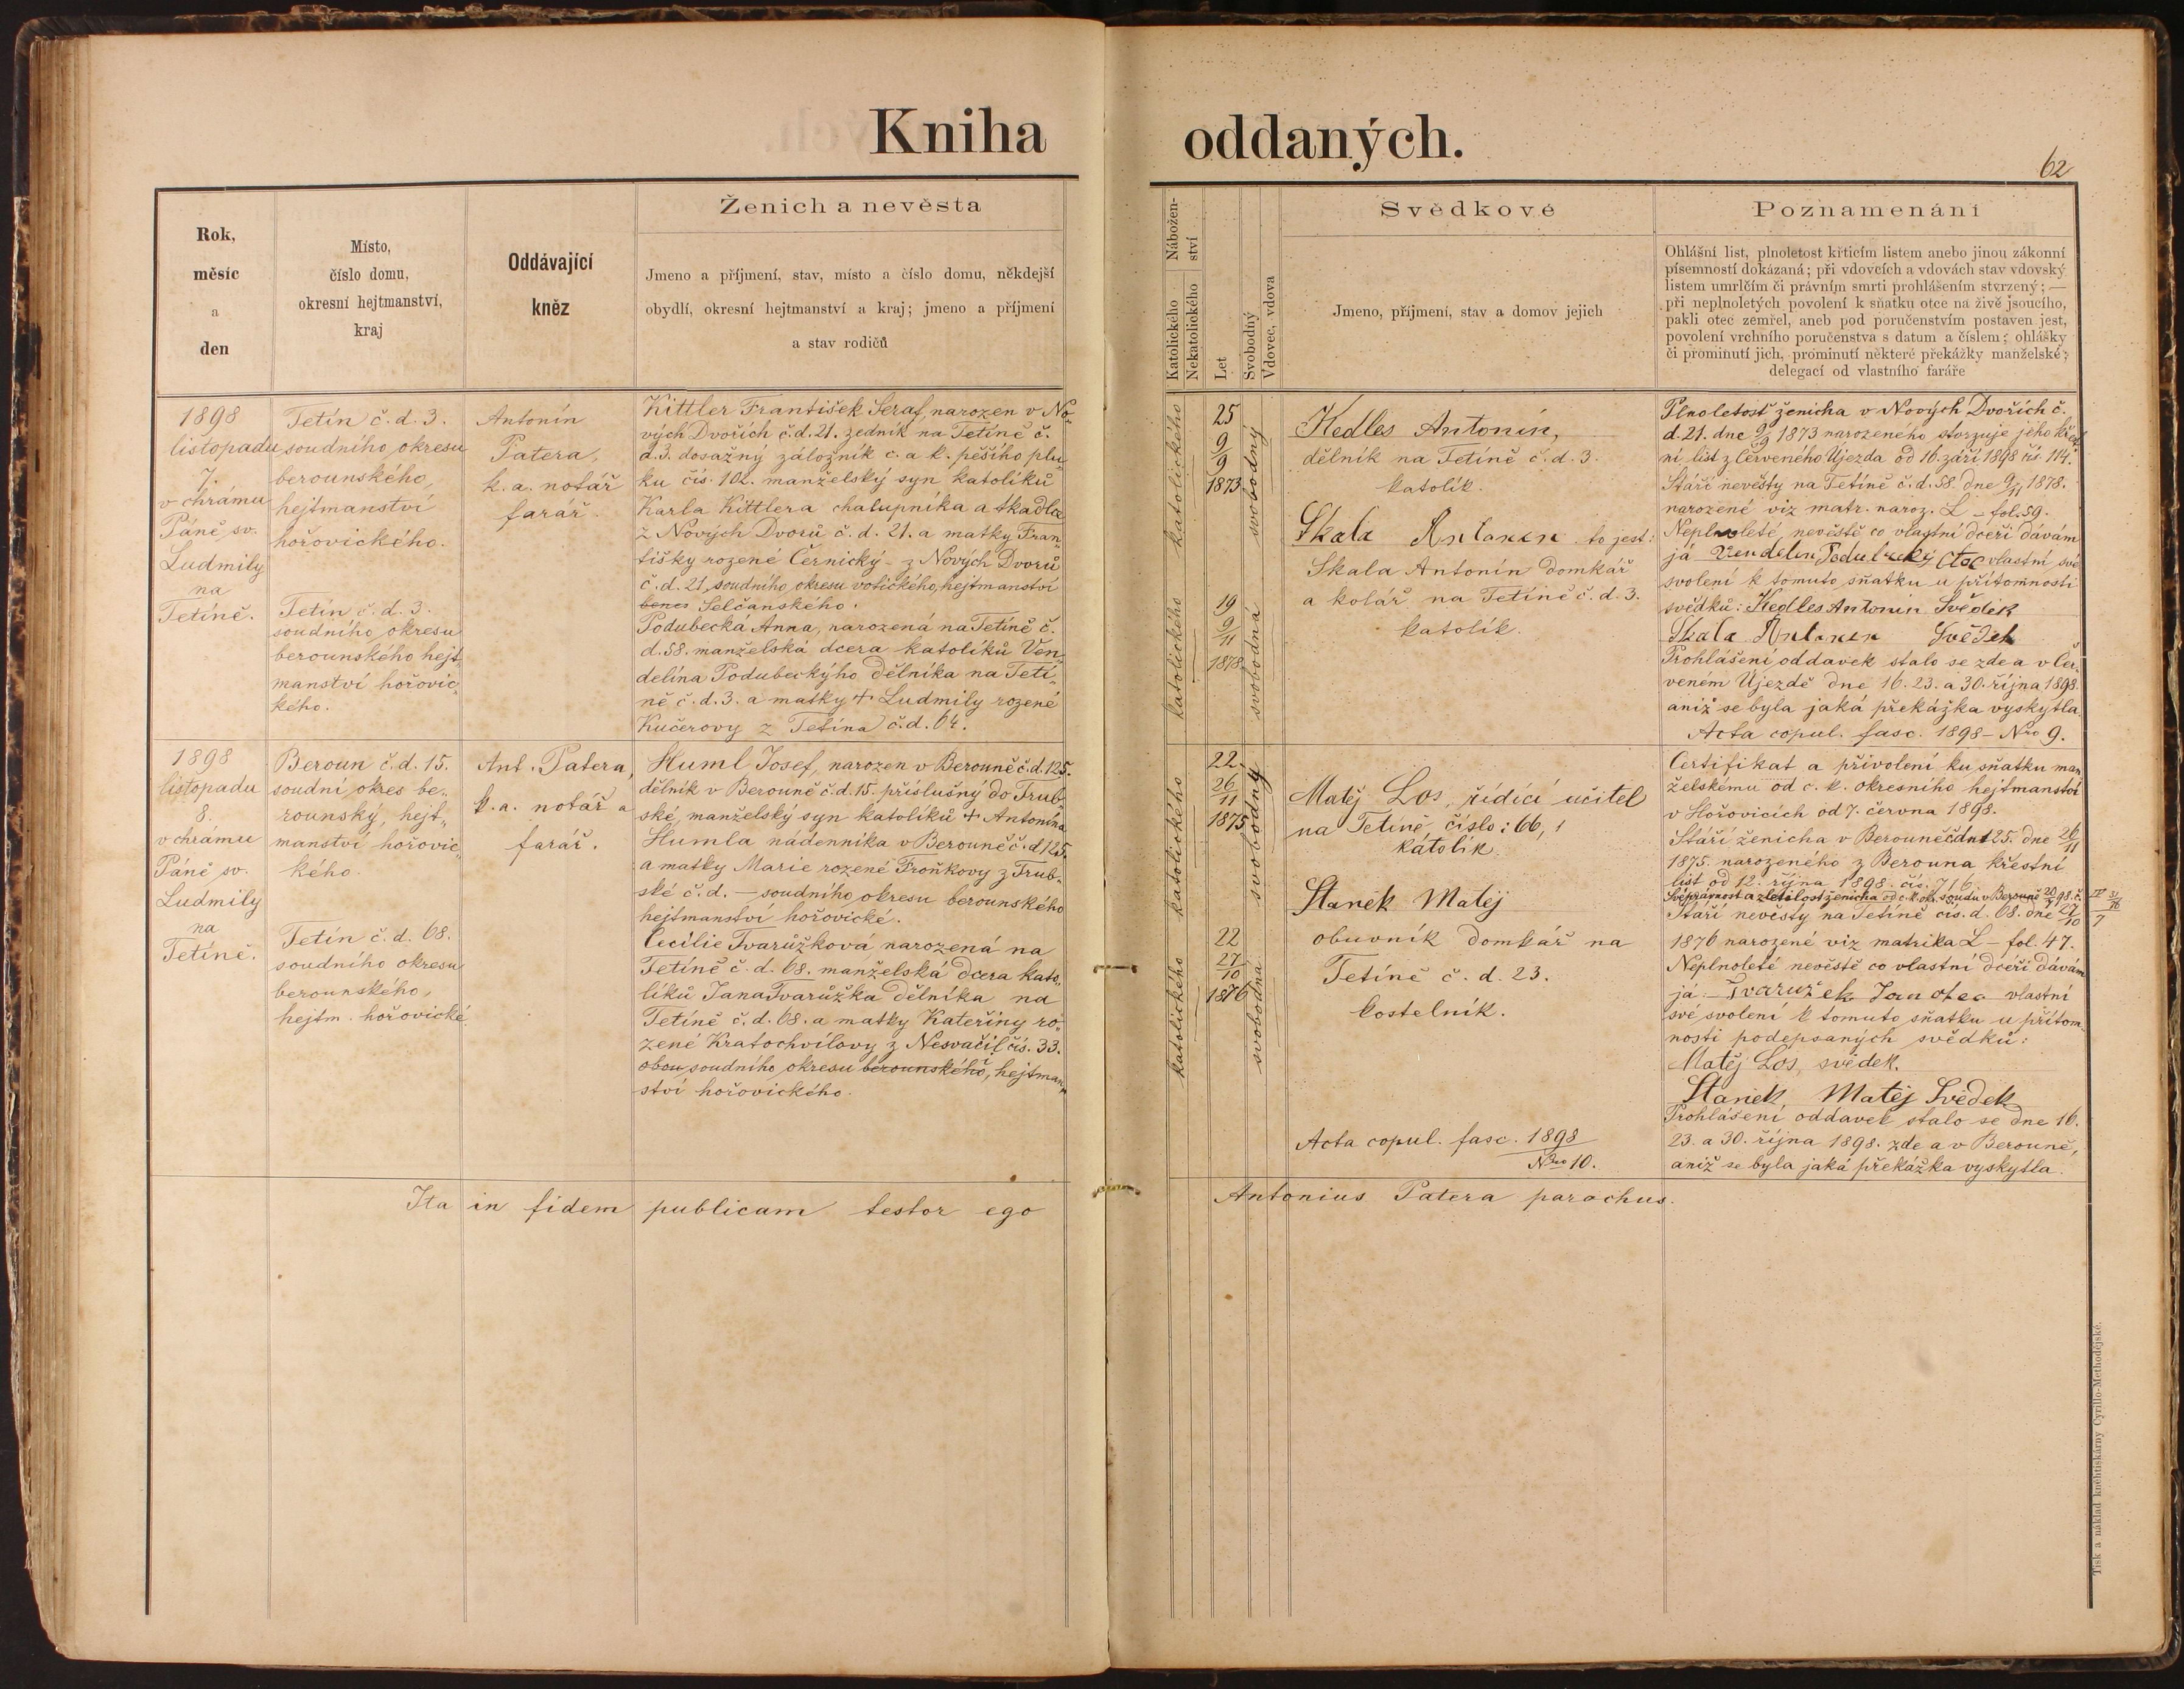 Kniha oddaných.
62
Rok,
měsíc
a
den
Místo,
číslo domu,
okresní hejtmanství,
kraj
Oddávající
kněz
Ženich a nevěsta
Jmeno a příjmení, stav, místo a číslo domu, někdejší
obydlí, okresní hejtmanství a kraj; jmeno a příjmení
a stav rodičů
Nábožen-
ství
Katolického
Nekatolického
Let
Svobodný
Vdovec, vdova
Svědkové
Jmeno, příjmení, stav a domov jejich
Poznamenání
Ohlášní list, plnoletost křticím listem anebo jinou zákonní
písemností dokázaná; při vdovcích a vdovách stav vdovský
listem umrlčím či právním smrti prohlášením stvrzený; —
při neplnoletých povolení k sňatku otce na živě jsoucího,
pakli otec zemřel, aneb pod poručenstvím postaven jest,
povolení vrchního poručenstva s datum a číslem; ohlášky
či prominutí jich, prominutí některé překážky manželské;
delegací od vlastního faráře
1898
listopadu
7.
v chrámu
Páně sv.
Ludmily
na
Tetíně.
Tetín č. d. 3.
soudního okresu
berounského,
hejtmanství
hořovického.
Tetín č. d. 3.
soudního okresu
berounského hejt„
manství hořovic„
kého.
Antonín
Patera,
k. a. notář
farář.
Kittler František Seraf, narozen v No„
vých Dvořích č. d. 21. zedník na Tetíně č.
d. 3. dosažný záložník c. a k. pěšího plu„
ku čís. 102. manželský syn katolíků
Karla Kittlera chalupníka a tkadlce
z Nových Dvorů č. d. 21. a matky Fran„
tišky rozené Černický - z Nových Dvorů
č. d. 21, soudního okresu votického, hejtmanství
benes Selčanského.
Podubecká Anna, narozená na Tetíně č.
d. 58. manželská dcera katolíků Ven„
delína Podubeckýho dělníka na Tetí„
ně č. d. 3. a matky + Ludmily rozené
Kučerovy z Tetína č. d. 64.
katolického
25
9/9
1873
svobodný
katolického
19
9/11
1878
svobodná
Kedles Antonín,
dělník na Tetíně č. d. 3.
katolík.
Skala Antonín to jest:
Skala Antonín domkář
a kolář na Tetíně č. d. 3.
katolík.
Plnoletost ženicha v Nových Dvořích č.
d. 21. dne 9/9 1873 narozeného stvrzuje jeho křest„
ní list z Červeného Újezda od 16. září 1898 čís. 114.
Stáří nevěsty na Tetíně č. d. 58. dne 9/11 1878.
narozené viz matr. naroz. L - fol. 59.
Neplnoleté, nevěstě co vlastní dceři dávám
já Vendelín Podubecký Otec vlastní své
svolení k tomuto sňatku u přítomnosti
svědků: Kedles Antonín Svědek
Skala Antonín Svědek
Prohlášení oddavek stalo se zde a v Čer„
veném Újezdě dne 16. 23. a 30. října 1898.
aniž se byla jaká překážka vyskytla.
Acta copul. fasc. 1898 - Nro 9.
1898
listopadu
8.
v chrámu
Páně sv.
Ludmily
na
Tetíně.
Beroun č. d. 15.
soudní okres be„
rounský, hejt„
manství hořovic„
kého.
Tetín č. d. 68.
soudního okresu
berounského,
hejtm. hořovické
Ant. Patera,
k. a. notář a
farář.
Huml Josef, narozen v Berouně č. d. 125.
dělník v Berouně č. d. 15. příslušný do Trub„
ské, manželský syn katolíků + Antonína
Humla nádenníka v Berouně č. d. 125.
a matky Marie rozené Froňkovy z Trub„
ské č. d. — soudního okresu berounského
hejtmanství hořovické.
Cecílie Tvarůžková narozená na
Tetíně č. d. 68. manželská dcera kato„
líků Jana Tvarůžka dělníka na
Tetíně č. d. 68. a matky Kateřiny ro„
zené Kratochvílovy z Nesvačil čís. 33.
obou soudního okresu berounského, hejtman„
ství hořovického.
katolického
22
26/11
1875
svobodný
katolického
22
27/10
1876
svobodná
Matěj Los, řídící učitel
na Tetíně, číslo: 66,
katolík.
Staněk Matěj
obuvník domkář na
Tetíně č. d. 23.
kostelník.
Acta copul. fasc. 1898
Nro 10.
Certifikat a přivolení ku sňatku man„
želskému od c. k. okresního hejtmanství
v Hořovicích od 7. června 1898.
Stáří ženicha v Berouně čdn 125. dne 26/11
1875. narozeného z Berouna křestní
list od 12. října 1898. čís. 716.
Svéprávnost a zletilost ženicha od c. k. okr. soudu v Berouně 98. č.
Stáří nevěsty na Tetíně čís. d. 68. dne 27/10
1876 narozené viz matrika L - fol. 47.
Neplnoleté nevěstě co vlastní dceři dávám
já: Tvarůžek Jan otec vlastní
své svolení k tomuto sňatku u přítom„
nosti podepsaných svědků:
Matěj Los, svědek.
Staněk, Matěj Svědek
Prohlášení oddavek stalo se dne 16.
23. a 30. října 1898. zde a v Berouně,
aniž se byla jaká překážka vyskytla.
Ita in fidem publicam testor ego Antonius Patera parochus.
Tisk a náklad knihtiskárny Cyrillo-Methodějské.